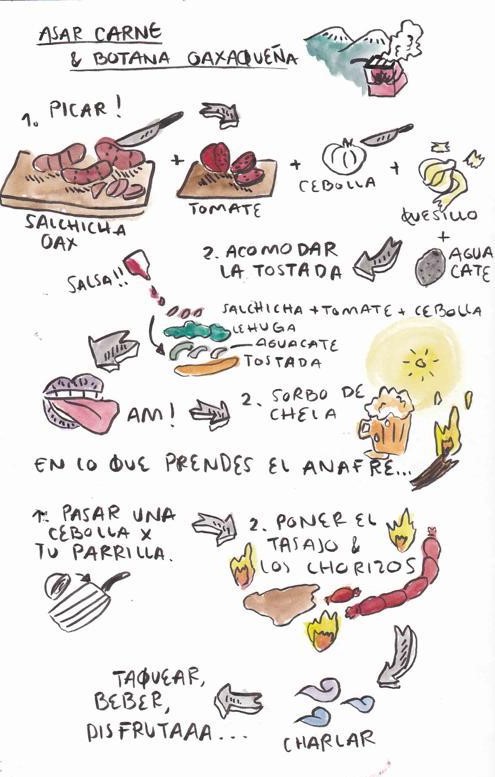 ASAR CARNE
& BOTANA OAXAQUEÑA
1. PICAR!
SALCHICHA
OAX
+
TOMATE
+
CEBOLLA
+
QUESILLO
+
AGUA
CATE
2. ACOMODAR
LA TOSTADA
SALSA!!
SALCHICHA + TOMATE + CEBOLLA
LEHUGA
AGUACATE
TOSTADA
AM!
2. SORBO DE
CHELA
EN LO QUE PRENDES EL ANAFRE...
1. PASAR UNA
CEBOLLA X
TU PARRILLA.
2. PONER EL
TASAJO &
LOS CHORIZOS
CHARLAR
TAQUEAR,
BEBER,
DISFRUTAAA...